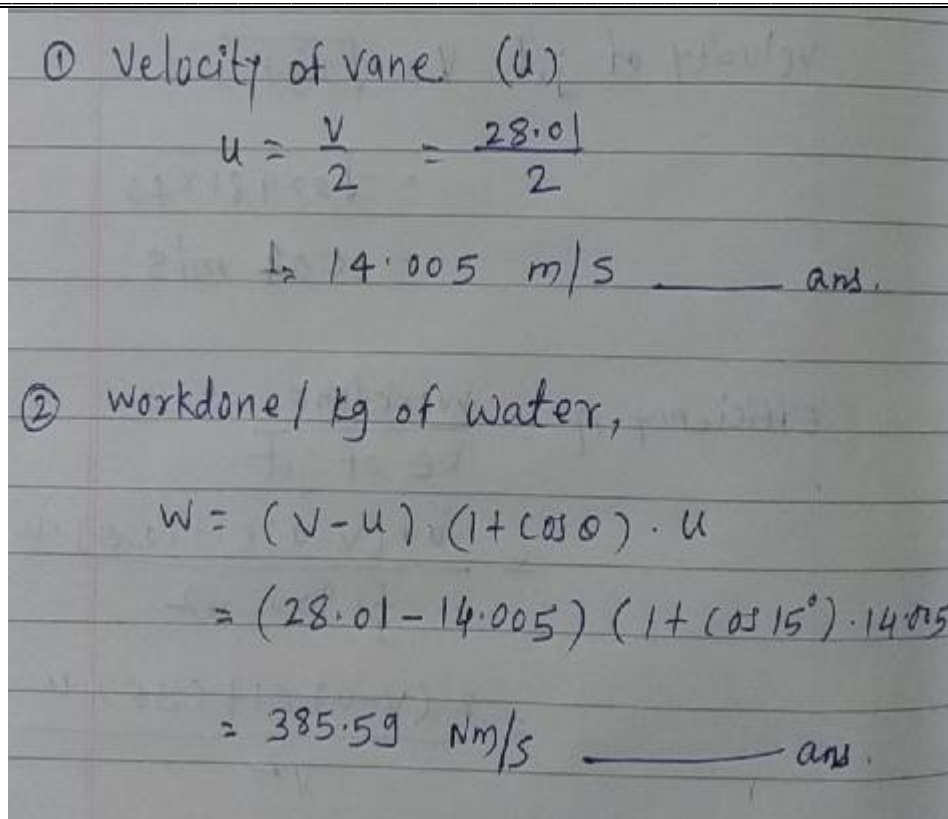 ① Velocity of vane (u)
u = V/2 = 28.01/2
= 14.005 m/s ——— ans.
② workdone / kg of water,
W = (V-u) (1+cosθ) . u
= (28.01-14.005) (1+cos 15°) . 14.005
= 385.59 Nm/s ——— ans.